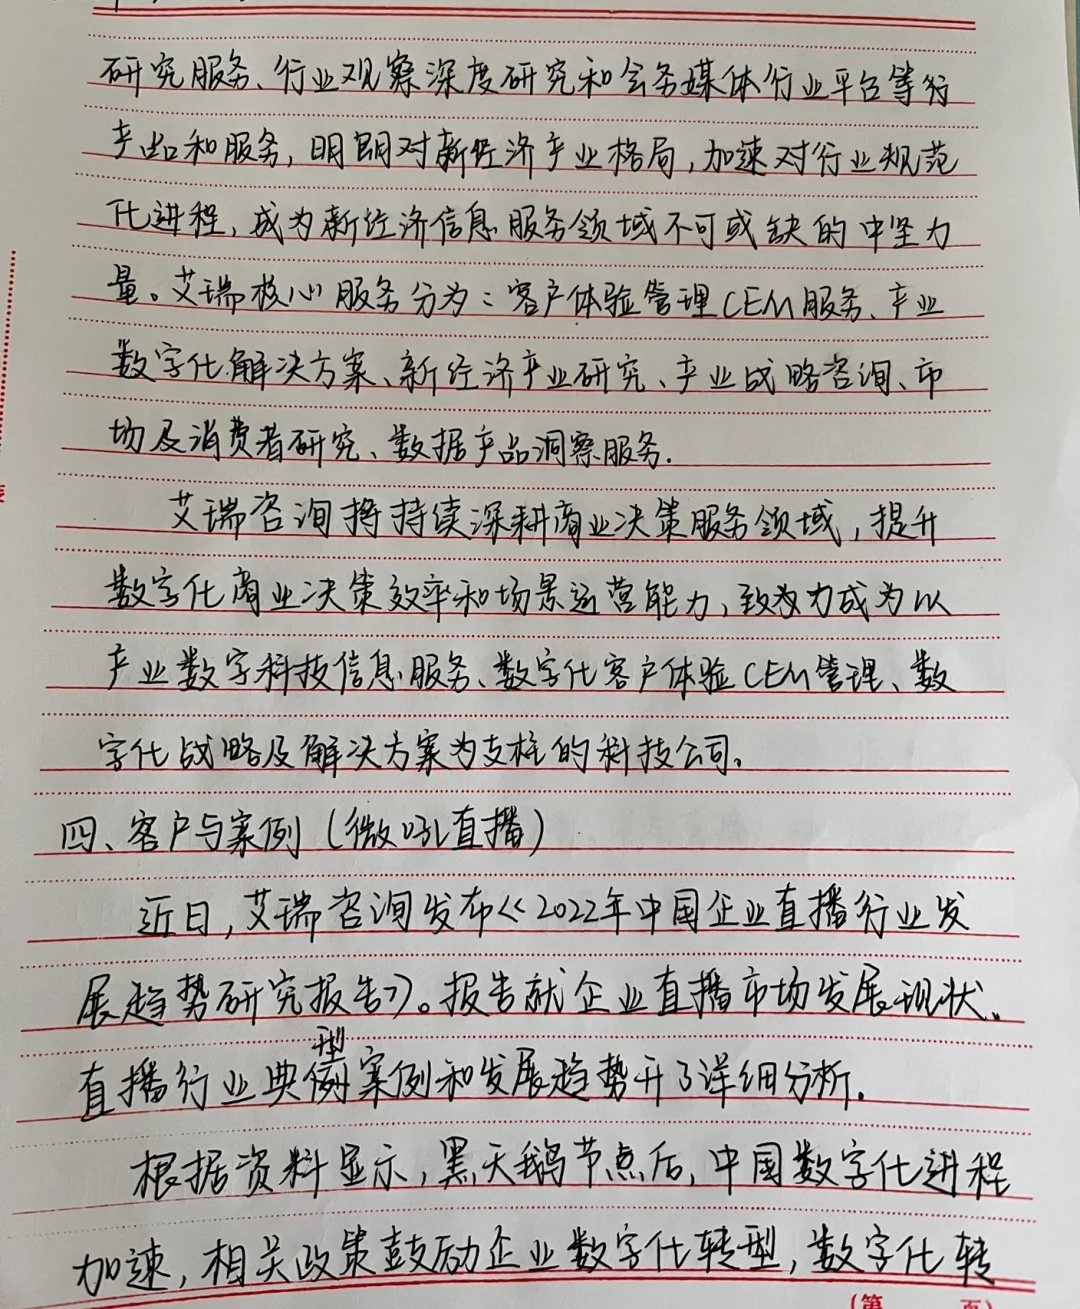 研究服务、行业观察深度研究和会务媒体行业平台等行
产出和服务，明朗对新经济产业格局，加速对行业规范
化进程，成为新经济信息服务领域不可或缺的中坚力
量。艾瑞核心服务分为：客户体验管理CEM服务、产业
数字化解决方案、新经济产业研究、产业战略咨询、市
场及消费者研究、数据产品洞察服务.
艾瑞咨询将持续深耕商业决策服务领域，提升
数字化商业决策效率和场景运营能力，致力成为以
产业数字科技信息服务、数字化客户体验CEM管理、数
字化战略及解决方案为支柱的科技公司。
四、客户与案例（微吼直播）
近日，艾瑞咨询发布《2022年中国企业直播行业发
展趋势研究报告》。报告就企业直播市场发展现状、
型
直播行业典案例和发展趋势开了详细分析.
根据资料显示，黑天鹅节点后，中国数字化进程
加速，相关政策鼓励企业数字化转型，数字化转
（第 页）